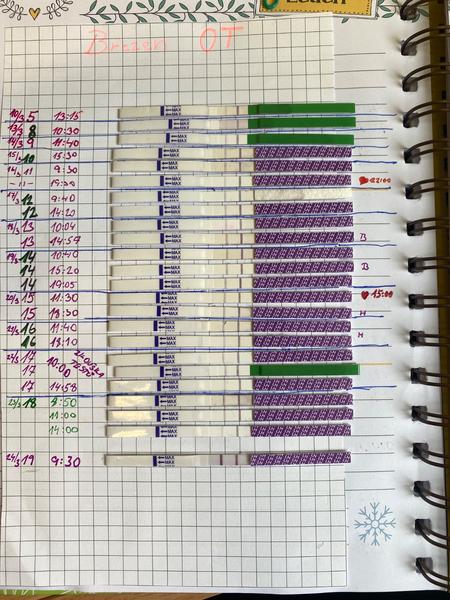 Brezen OT
10/3 5 13:15
13/3 8 10:30
14/3 9 11:40
15/3 10 15:30
16/3 11 9:30
-11- 19:30 ♥ 21:00
17/3 12 9:40
12 14:20
18/3 13 10:04
13 14:57 B
19/3 14 10:40
14 15:20 B
14 19:05
20/3 15 11:30 ♥ 15:00
15 19:30 H
21/3 16 11:40
16 19:10 H
22/3 17 10:00
17
17 14:58
23/3 18 8:50
11:00
14:00
24/3 19 9:30